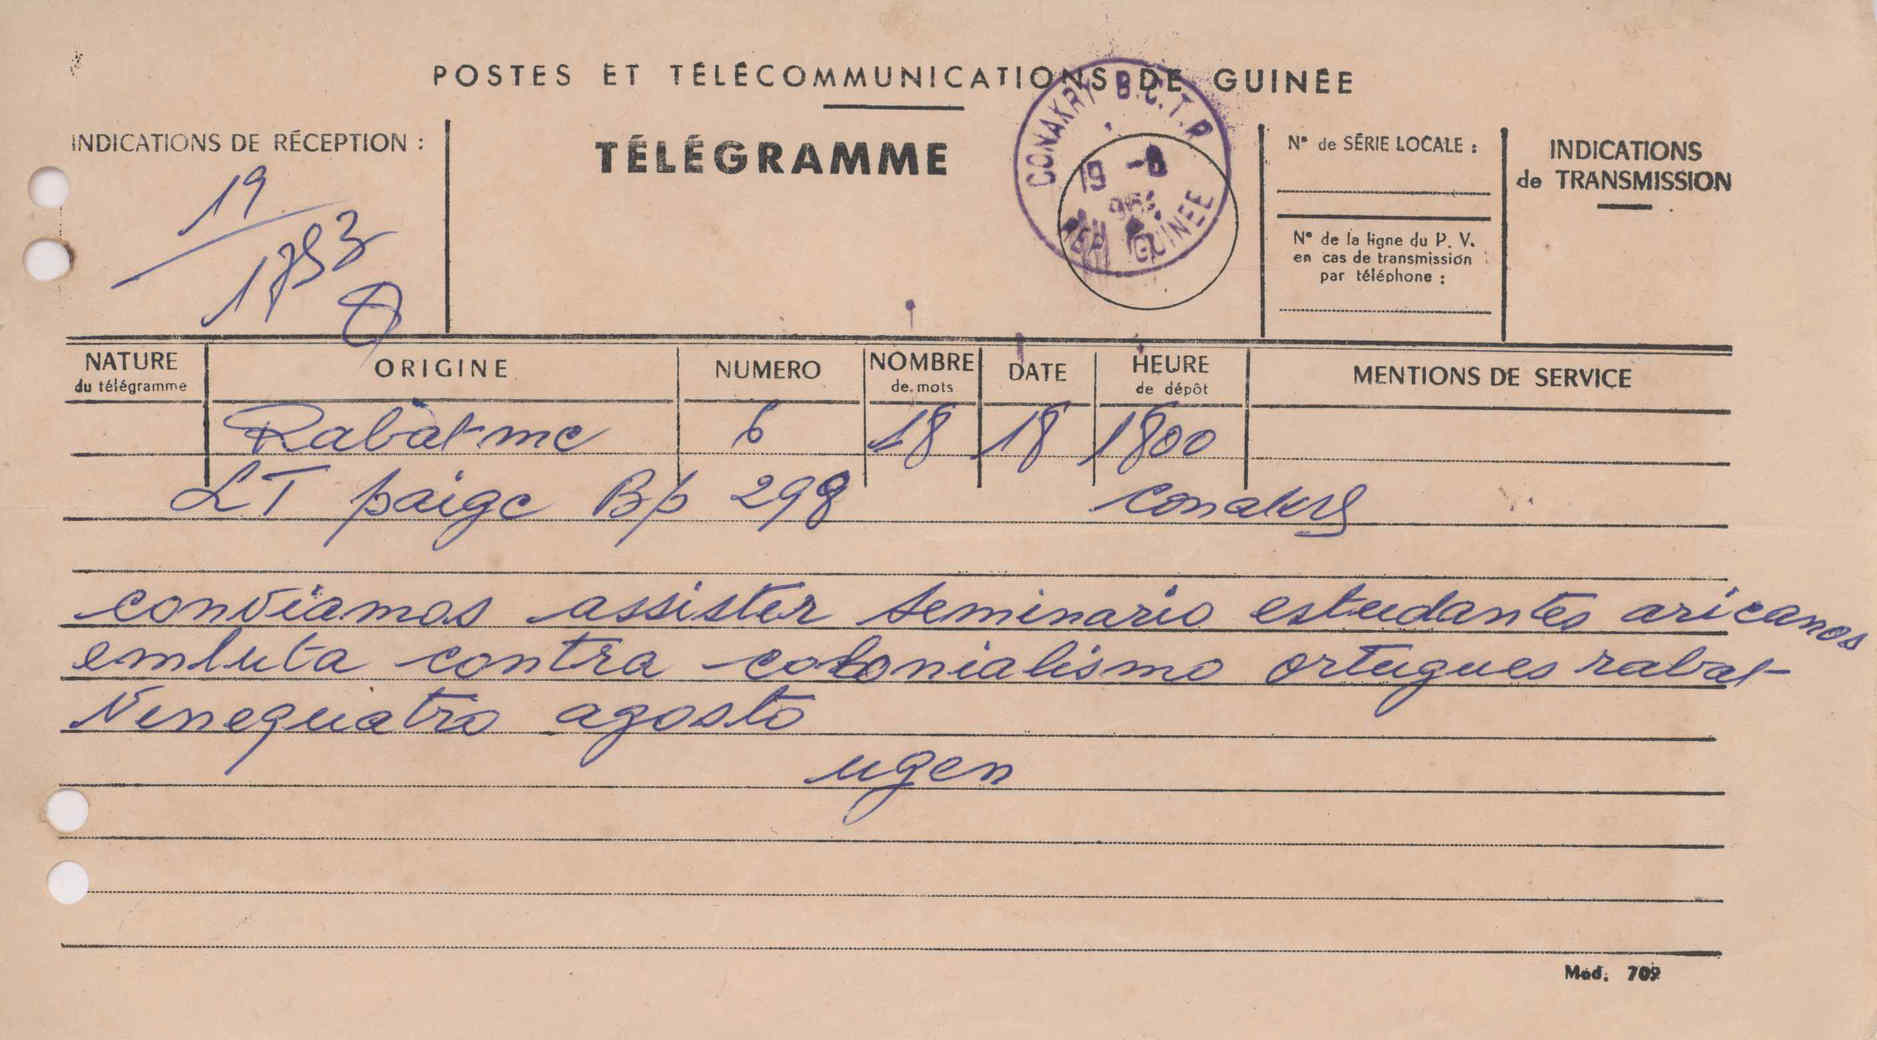 POSTES ET TÉLÉCOMMUNICATIONS DE GUINÉE
INDICATIONS DE RÉCEPTION :
19
1753
TÉLÉGRAMME
CONAKRY B.C.T.R
19 -8
REP. GUINEE
N° de SÉRIE LOCALE :
N° de la ligne du P. V.
en cas de transmission
par téléphone :
INDICATIONS
de TRANSMISSION
NATURE
du télégramme
ORIGINE
NUMERO
NOMBRE
de mots
DATE
HEURE
de dépôt
MENTIONS DE SERVICE
Rabat mc 6 18 18 1800
LT paigc Bp 298 Conakry
conviamos assister seminario estudantes aricanos
emluta contra colonialismo ortugues rabat
Nenequatro agosto
ugen
Mod. 702